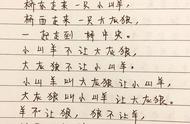 桥东走来一只小山羊,
桥西走来一只大灰狼,
一起走到桥中央。
小山羊不让大灰狼,
大灰狼不让小山羊。
小山羊叫大灰狼让小山羊,
大灰狼叫小山羊让大灰狼。
羊不让狼, 狼不让羊,